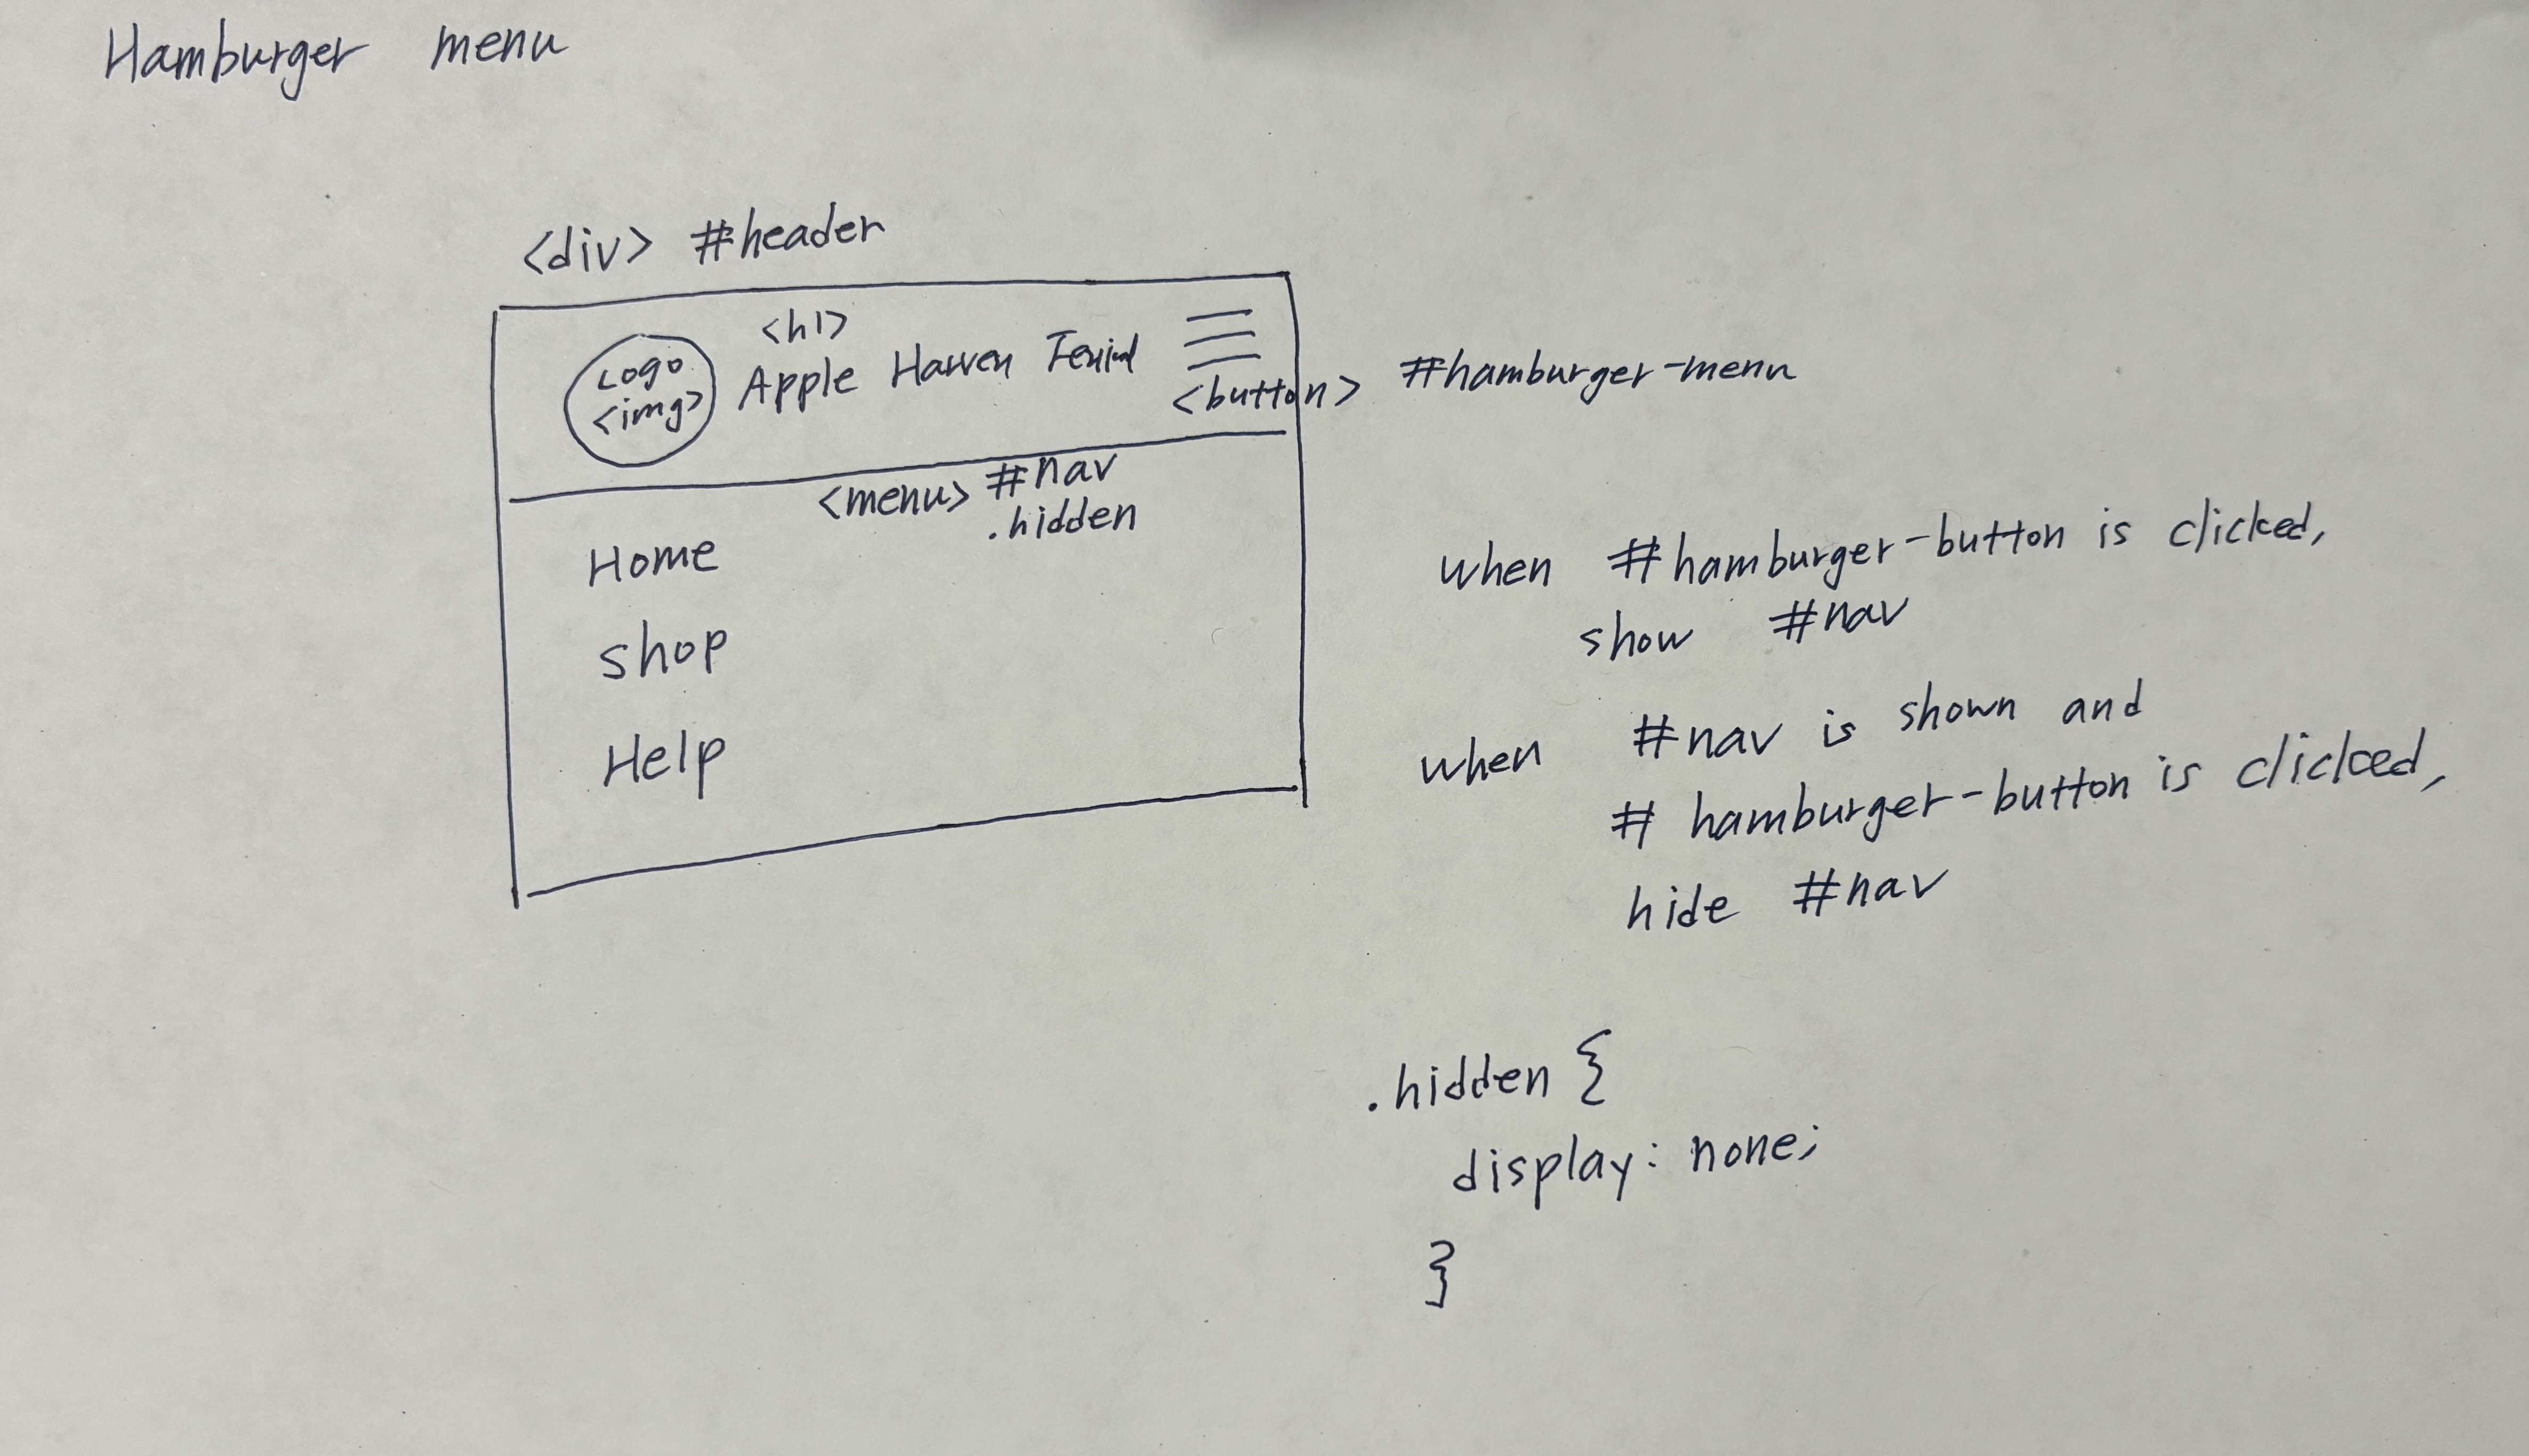 Hamburger menu
<div> #header
<h1>
Logo
<img>
Apple
<button>
#hamburger-menu
<menu> #nav
.hidden
Home
shop
Help
when #hamburger-button is clicked,
show #nav
when #nav is shown and
# hamburger-button is clicked,
hide #nav
.hidden {
display: none;
}